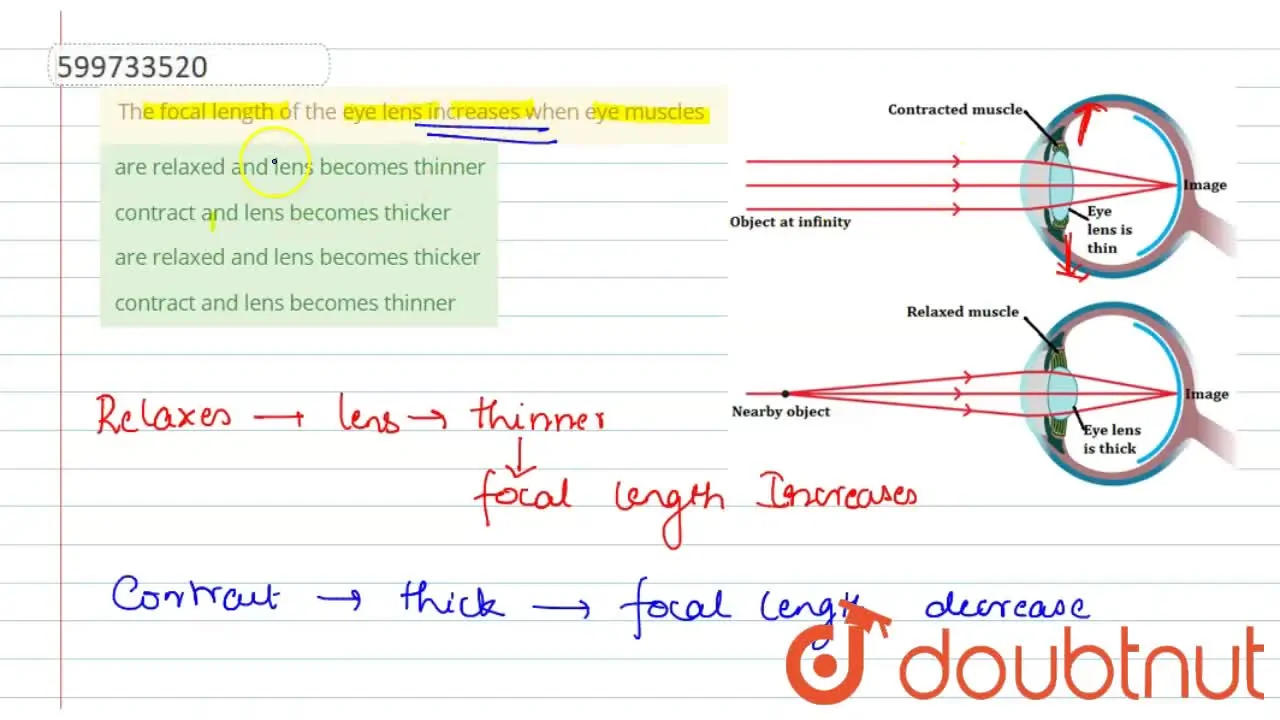 599733520
The focal length of the eye lens increases when eye muscles
are relaxed and lens becomes thinner
contract and lens becomes thicker
are relaxed and lens becomes thicker
contract and lens becomes thinner
Contracted muscle
Image
Object at infinity
Eye
lens is
thin
Relaxed muscle
Nearby object
Image
Eye lens
is thick
Relaxes → lens → thinner
↓
focal length Increases
Contract → thick → focal length decrease
doubtnut